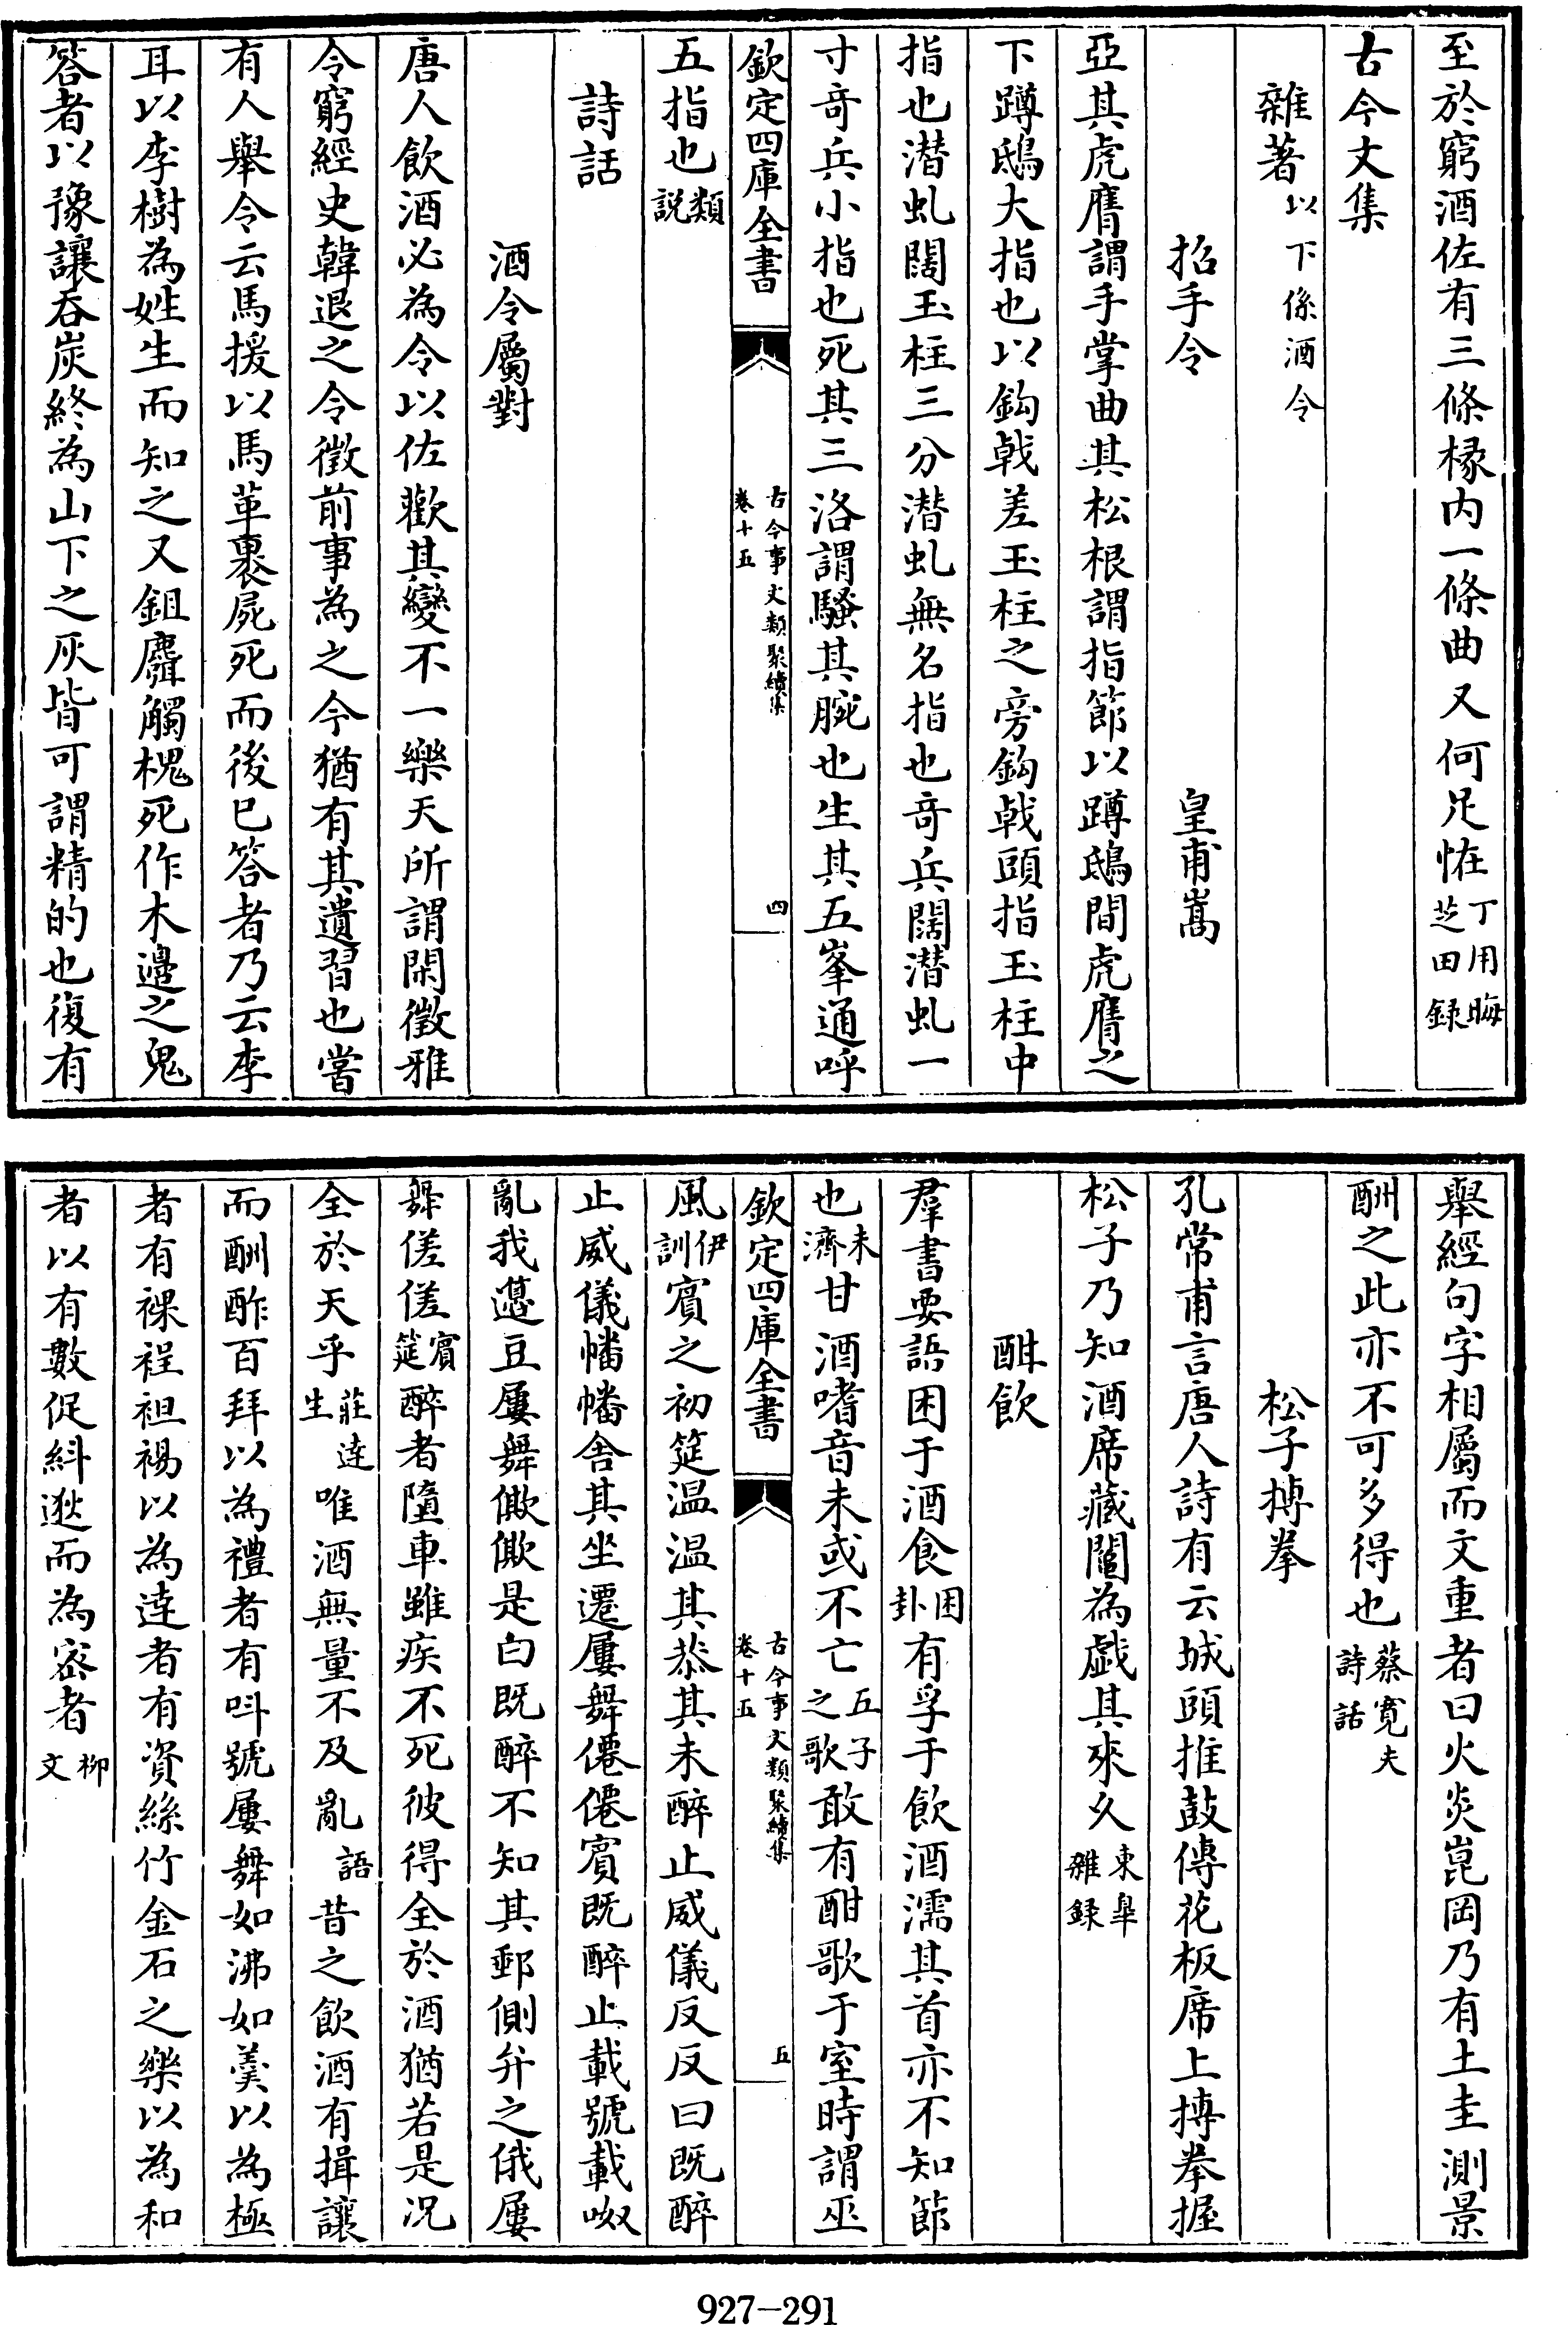 至於窮酒佐有三條椽内一條曲又何足恠丁用晦芝田録
古今文集
雜著以下係酒令
招手令 皇甫嵩
亞其虎膺謂手掌曲其松根謂指節以蹲鴟間虎膺之
下蹲鴟大指也以鈎戟差玉柱之旁鈎戟頭指玉柱中
指也潛虬闊玉柱三分潛虬無名指也竒兵闊潛虬一
寸竒兵小指也死其三洛謂騷其腕也生其五峯通呼
欽定四庫全書 古今事文類聚續集 卷十五 四
五指也類説
詩話
酒令屬對
唐人飲酒必為令以佐歡其變不一樂天所謂閑徵雅
令窮經史韓退之令徵前事為之今猶有其遺習也嘗
有人舉令云馬援以馬革裹屍死而後已答者乃云李
耳以李樹為姓生而知之又鉏麑觸槐死作木邊之鬼
答者以豫讓吞炭終為山下之灰皆可謂精的也復有
舉經句字相屬而文重者曰火炎崑岡乃有土圭測景
酬之此亦不可多得也蔡寛夫詩話
松子搏拳
孔常甫言唐人詩有云城頭推鼓傳花板席上搏拳握
松子乃知酒席藏鬮為戯其來久東臯雜録
酣飲
羣書要語困于酒食困卦有孚于飲酒濡其首亦不知節
也未濟甘酒嗜音未或不亡五子之歌敢有酣歌于室時謂巫
欽定四庫全書 古今事文類聚續集 卷十五 五
風伊訓賓之初筵温温其恭其未醉止威儀反反曰既醉
止威儀幡幡舍其坐遷屢舞僊僊賓既醉止載號載呶
亂我籩豆屢舞僛僛是曰既醉不知其郵側弁之俄屢
舞傞傞賓筵醉者墮車雖疾不死彼得全於酒猶若是况
全於天乎莊達生唯酒無量不及亂語昔之飲酒有揖讓
而酬酢百拜以為禮者有呌號屢舞如沸如羮以為極
者有裸裎袒裼以為達者有資絲竹金石之樂以為和
者以有數促糾逖而為密者柳文
927-291